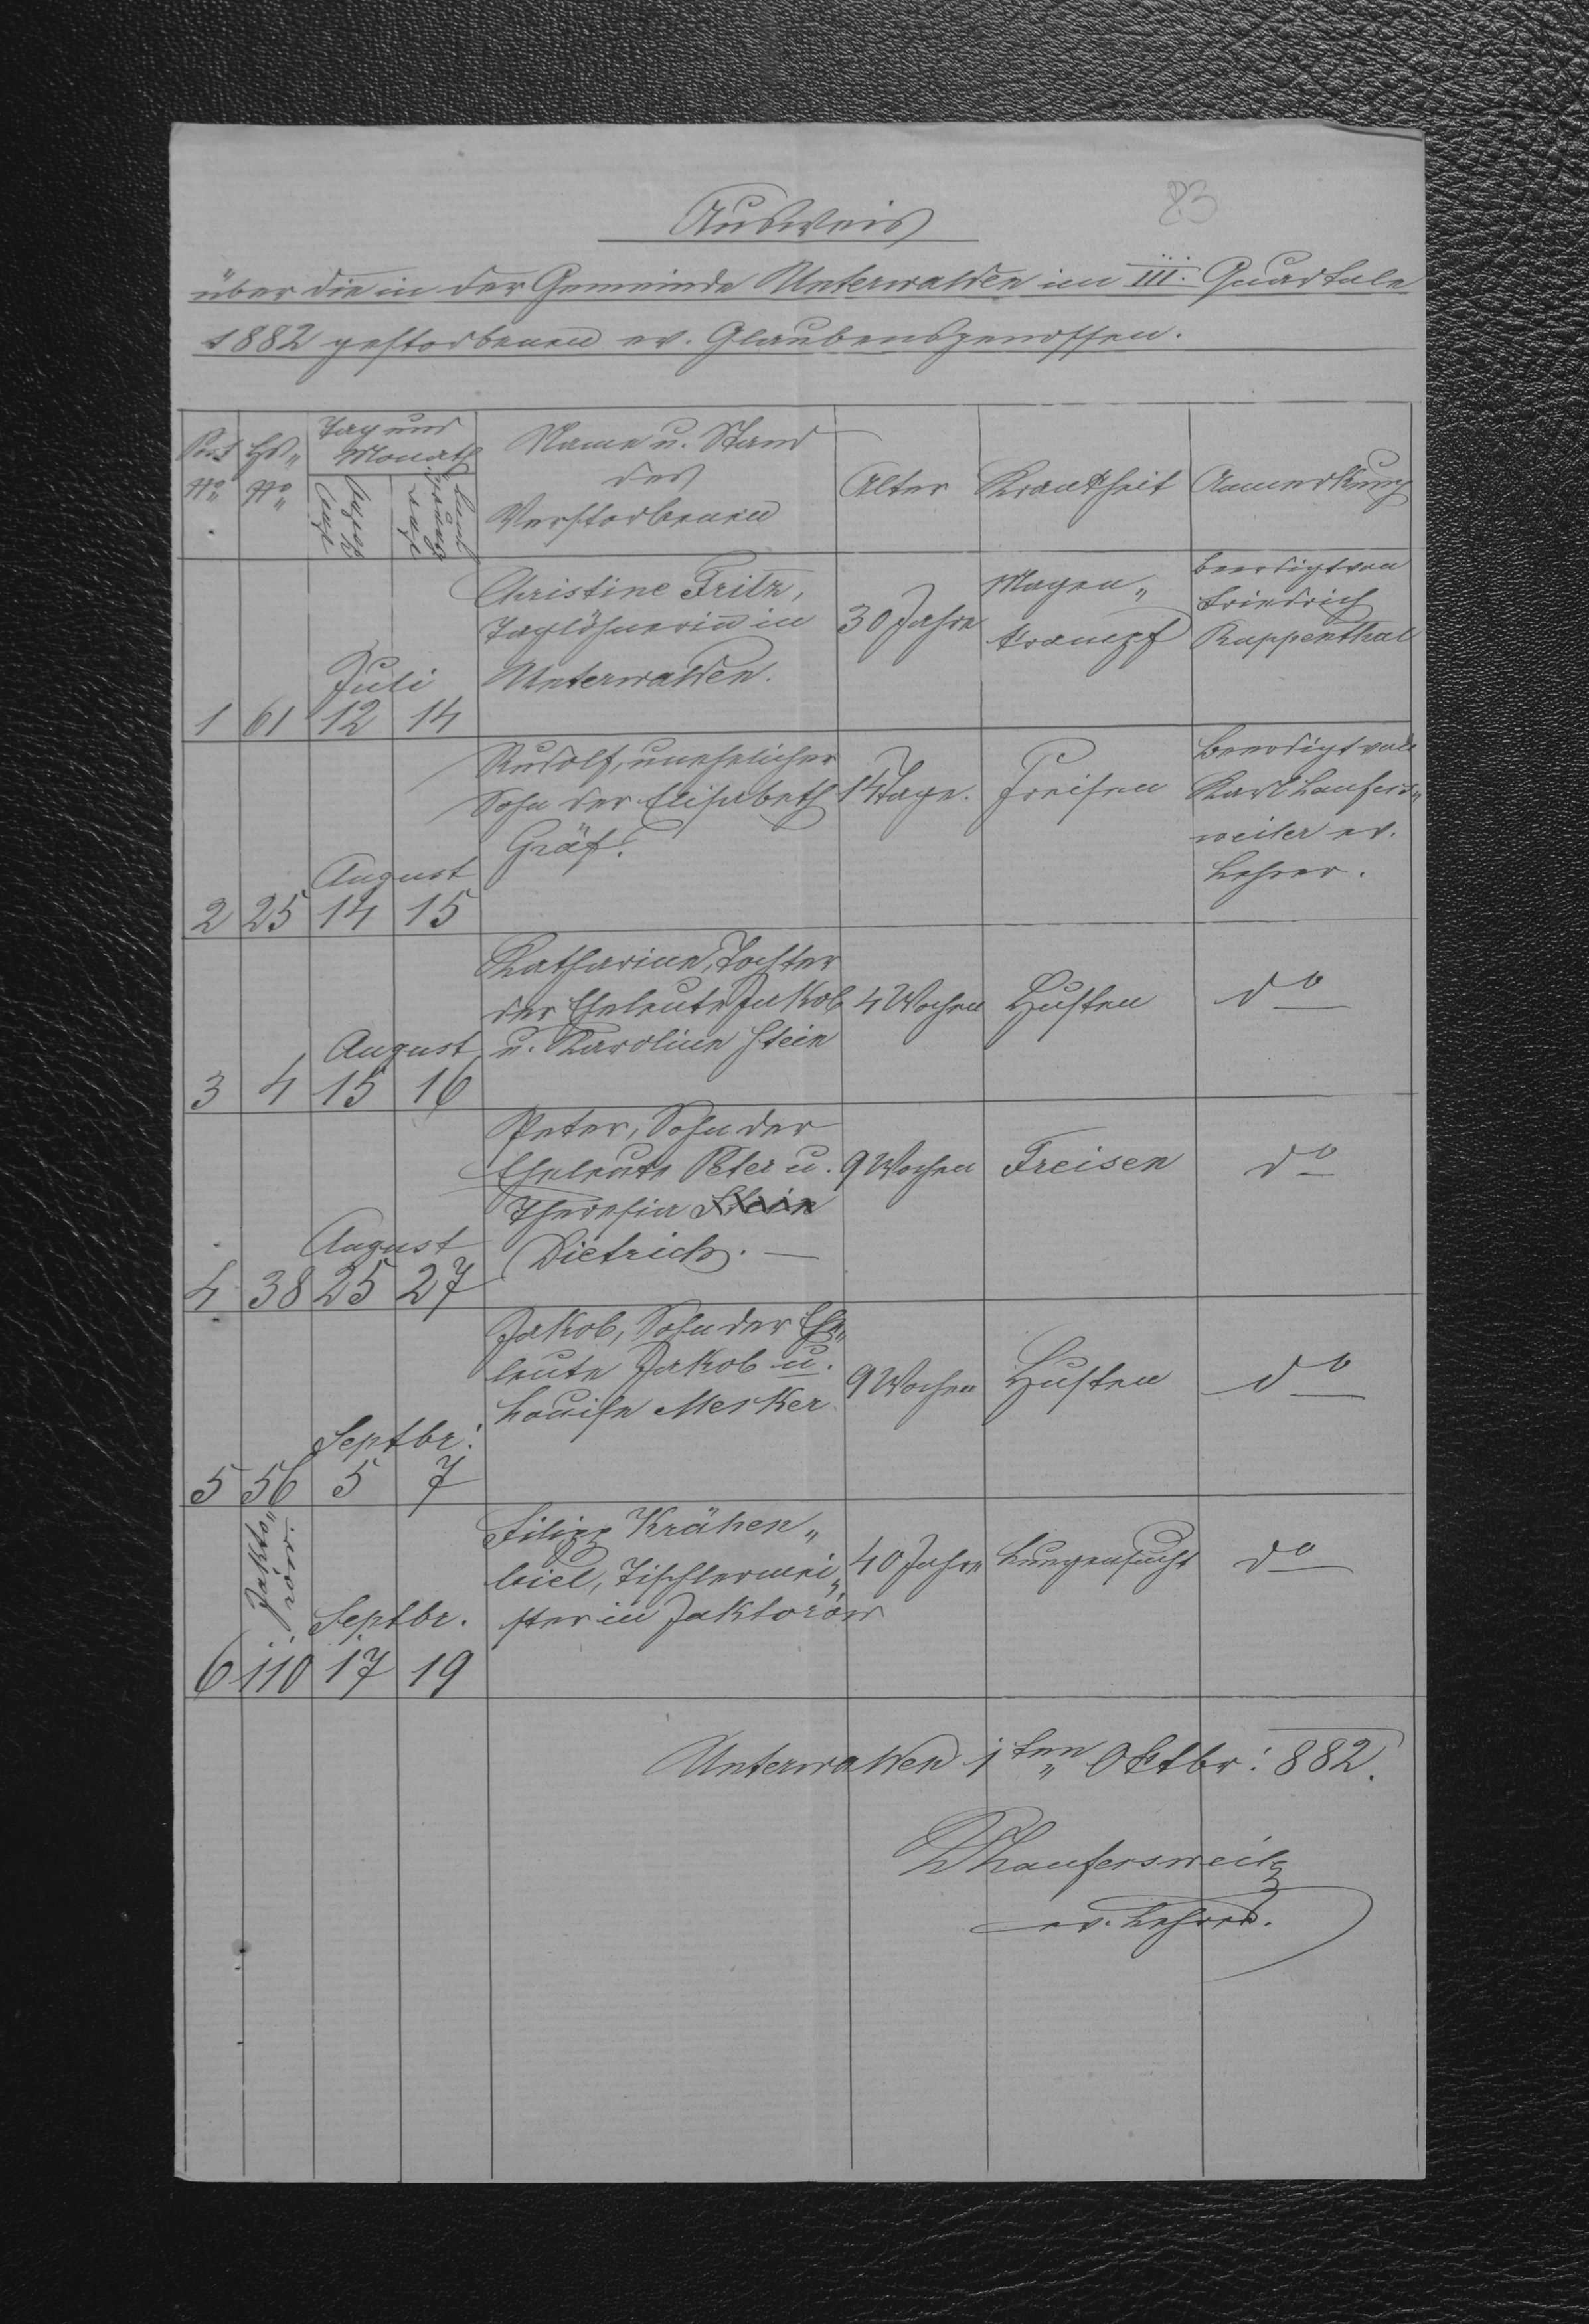 83
Ausweis
über die in der Gemeinde Unterwalden im III. Quartale
1882 gestorbenen ev. Glaubensgenossen.
Post No
Hs„ No
Tag und Monath
Name u. Stand
des
Verstorbenen
Alter
Krankheit
Anmerkung
Christine Fritz,
Taglöhnerin in
Unterwalden.
30 Jahre
Magen„
krampf
beerdigt von
Friedrich
Ruppenthal
Juli
1 61 12 14
Rudolf, unehelicher
Sohn der Elisabeth
Gräf.
14 Tage.
Freisen
Beerdigt von
Karl Laufers„
weiler ev.
Lehrer.
August
2 25 14 15
Katharine, Tochter
der Eheleute Jakob
u. Karoline Stein
4 Wochen
Husten
do
August
3 4 15 16
Peter, Sohn der
Eheleute Peter u.
Theresia Stein
Dietrich. —
9 Wochen
Freisen
do
August
4 38 25 27
Jakob, Sohn der Ehe„
leute Jakob u.
Louise Merker
9 Wochen
Husten
do
Septbr:
5 56 5 7
Filipp Krähen„
biel, Tischlermei„
ster in Jaktorów
40 Jahre
Lungensucht
do
Jakto„
rów.
Septbr.
6 110 17 19
Unterwalden 1ten Oktbr: 882.
Laufersweiler
ev. Lehrer.